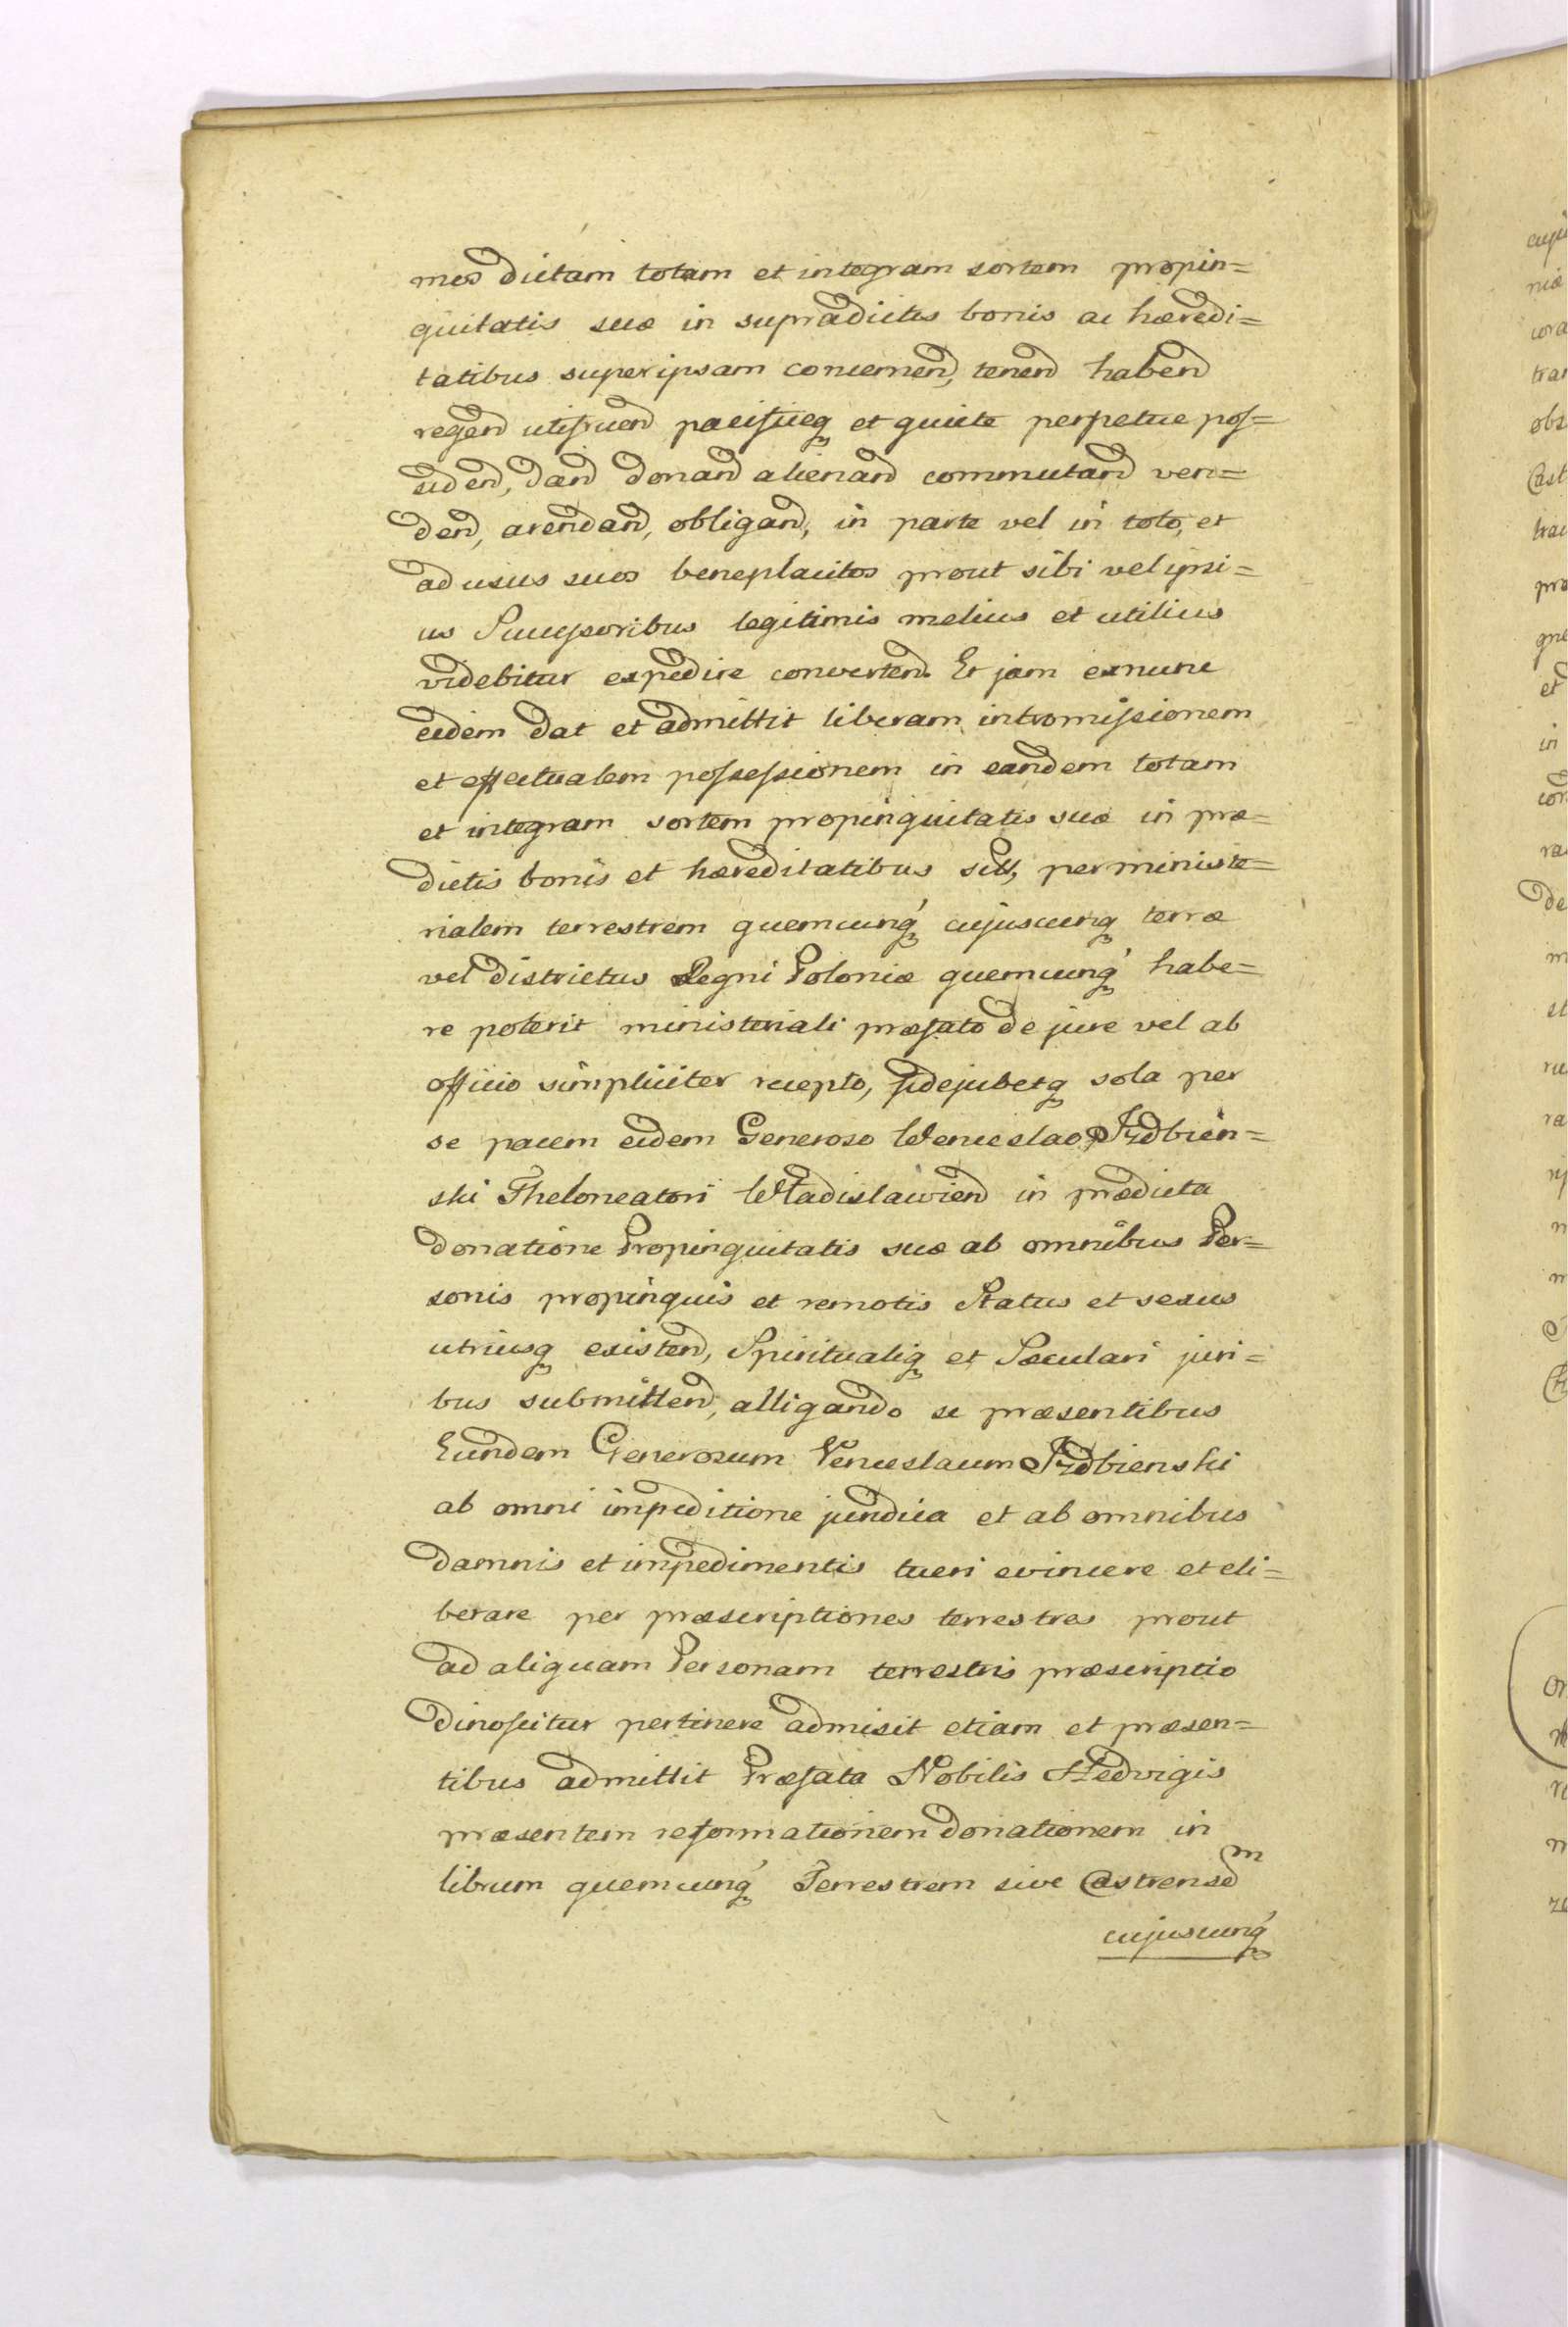 mes dictam totam et integram sortem propin=
quitatis suæ in supradictis bonis ac hæredi=
tatibus super ipsam concernend, tenend habend
regend utifruend pacificeq et quiete perpetue pos=
sidend, dand donand alienand commutand ven=
dend, arendand, obligand, in parte vel in toto, et
ad usus suos beneplacitos prout sibi vel ipsi=
us Successoribus legitimis melius et utilius
videbitur expedire convertend. Et jam exnunc
eidem dat et admittit liberam intromissionem
et effectualem possessionem in eandem totam
et integram sortem propinquitatis suæ in præ=
dictis bonis et hæreditatibus per ministe=
rialem terrestrem quemcunq cujuscunq terræ
vel districtus Regni Poloniæ quemcunq habe=
re poterit ministeriali præfato de jure vel ab
officio simpliciter recepto, fidejubetq sola per
se pacem eidem Generoso Wenceslao Izdbien=
ski Theloneatori Wladislawiend in prædicta
donatione Propinquitatis suæ ab omnibus Per=
sonis propinquis et remotis Status et sexus
utriusq existend, Spiritualiq et Sæculari juri=
bus submittend, alligando se præsentibus
Eundem Generosum Venceslaum Izdbienski
ab omni impeditione juridica et ab omnibus
damnis et impedimentis tueri evincere et eli=
berare per præscriptiones terrestres prout
ad aliquam Personam terrestris præscriptio
dinoscitur pertinere admisit etiam et præsen=
tibus admittit Præfata Nobilis Hedvigis
præsentem reformationem donationem in
librum quemcunq Terrestrem sive Castrensem
cujuscunq